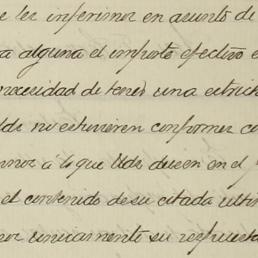 le inferimos en asunto de
a alguna el importe efectivo e
necesidad de tener una estrich
Uds no estuvieren conformes co
mos á lo que Uds deseen en el
el contenido de su citada ultim
mos unicamente su respuesta